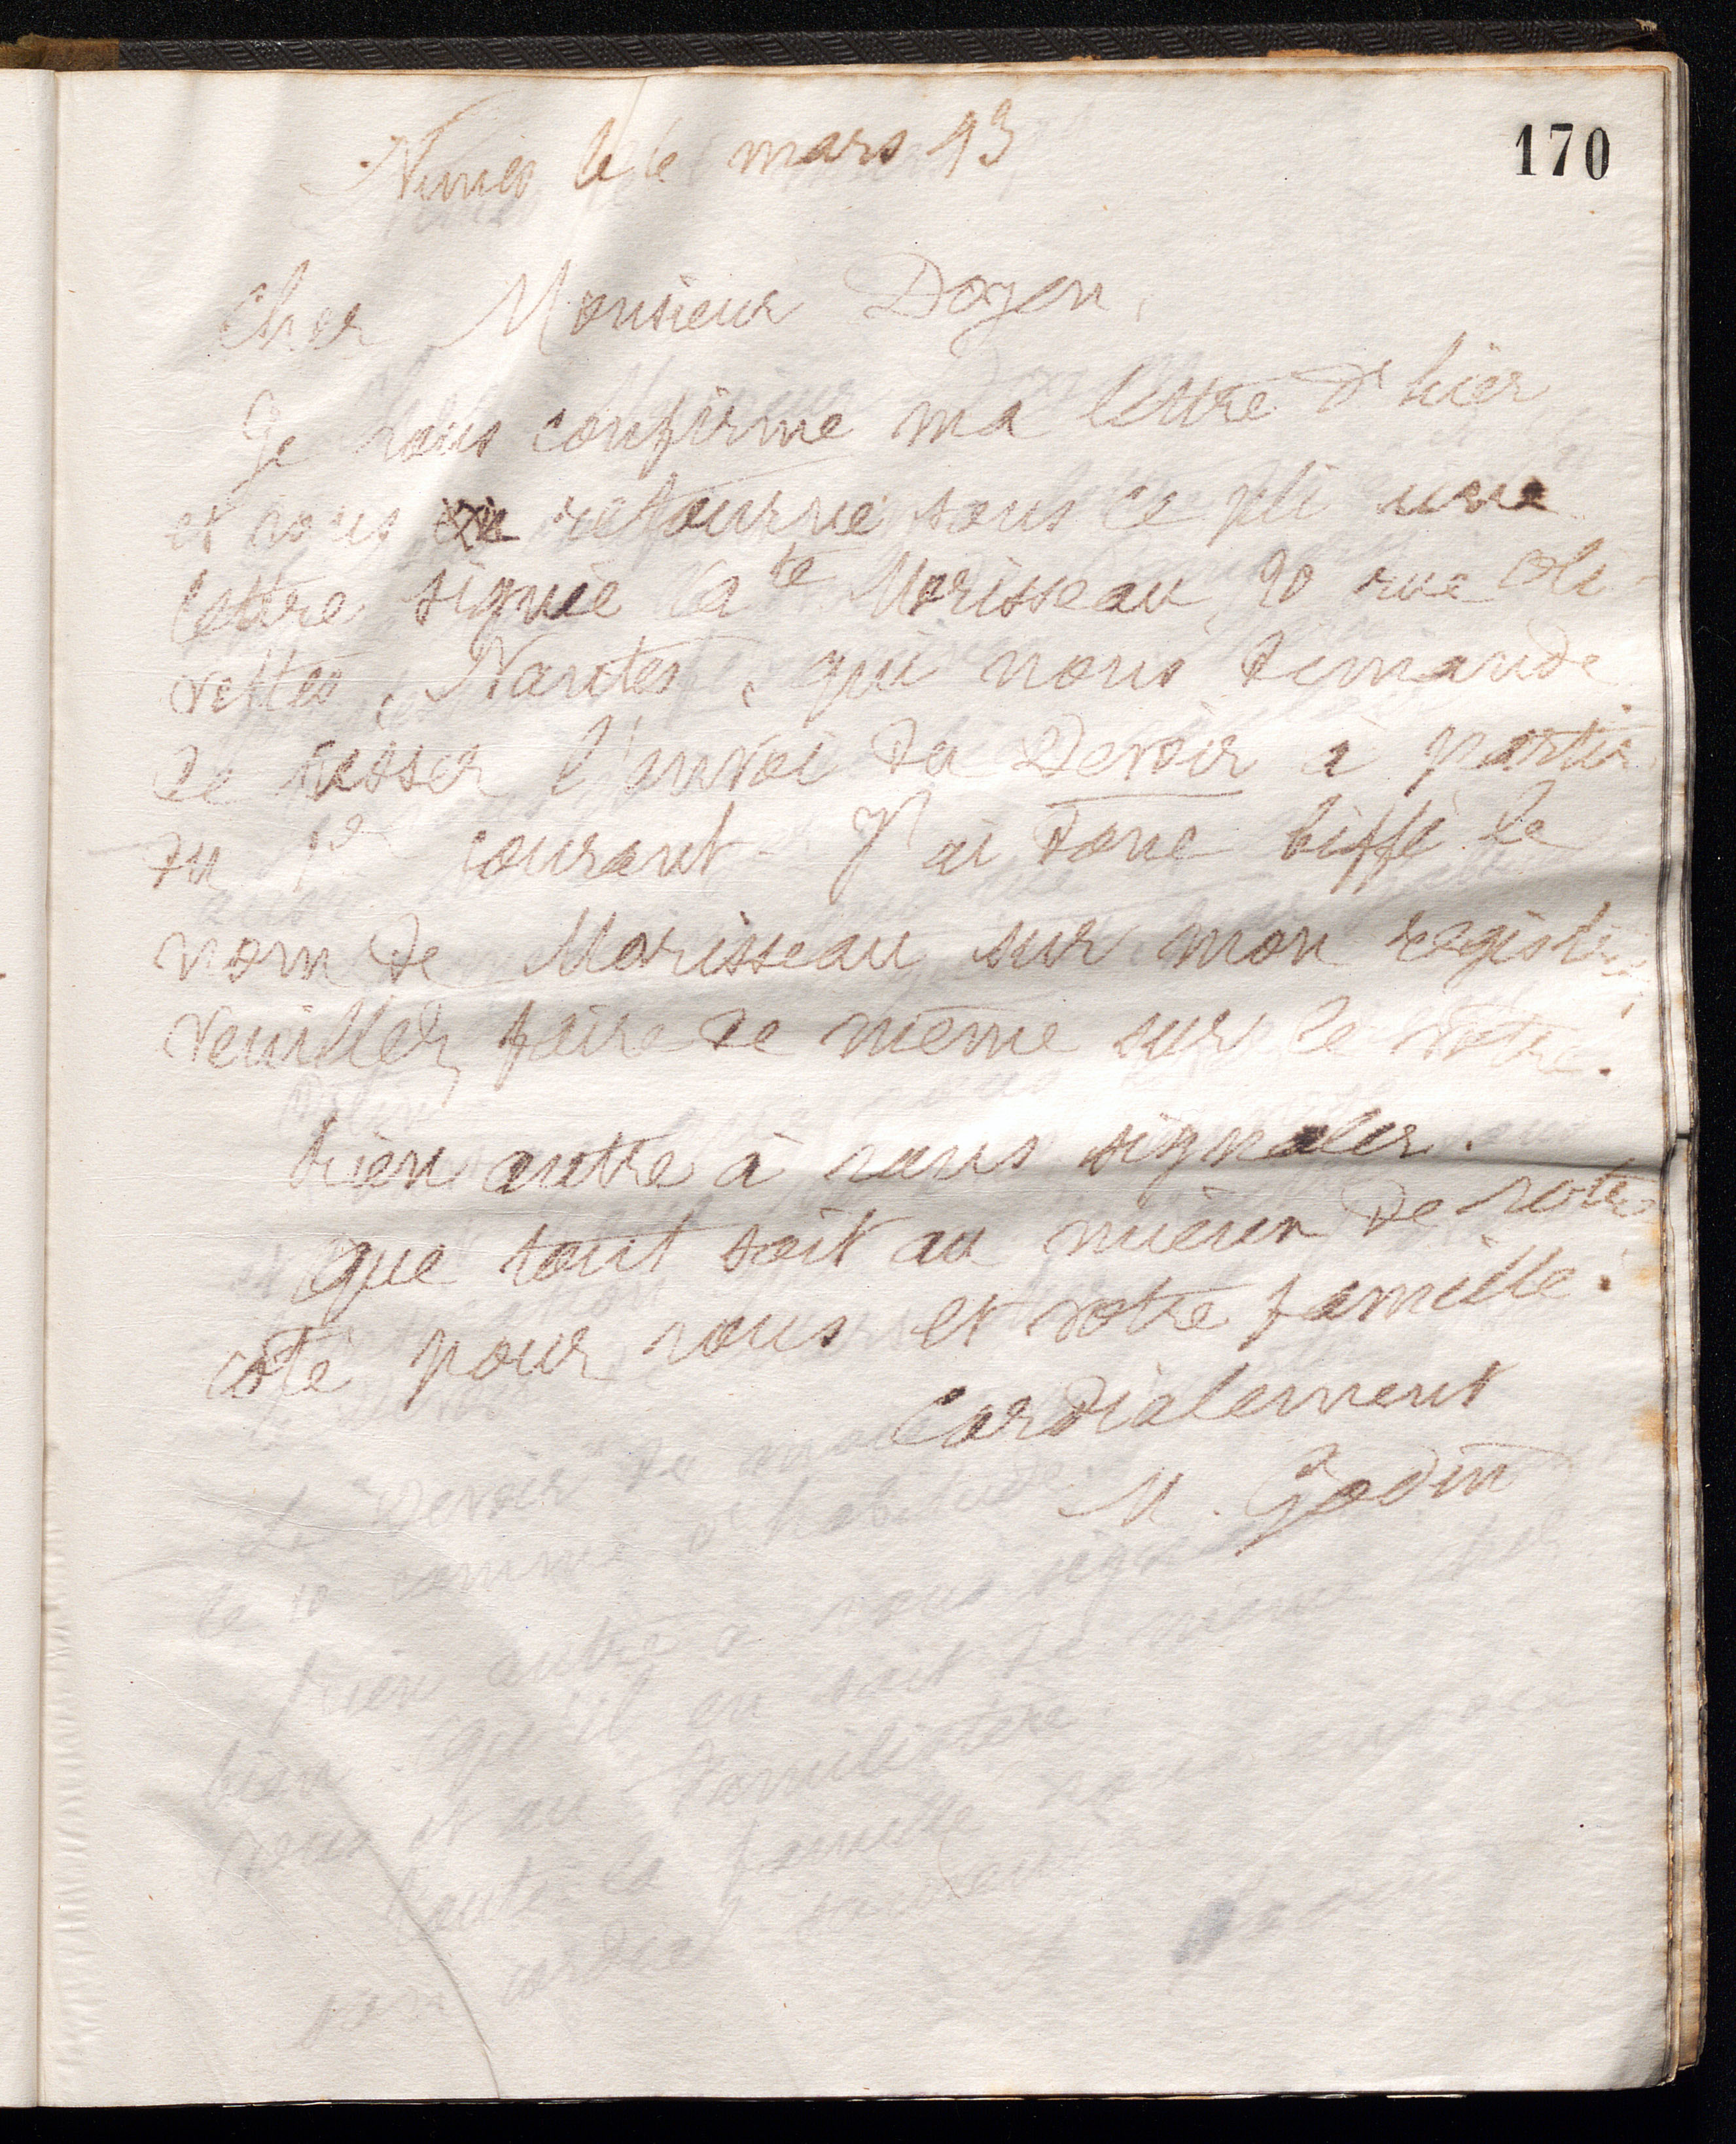 170
Nimes le 6 mars 93
Cher Monsieur Doyen,
Je vous confirme ma lettre d'hier
et vous retourne sous ce pli une
lettre signée Morisseau, 20 rue Oli-
vettes, Nantes, qui nous demande
de cesser l'envoi du Devoir à partir
du 1er courant. J'ai donc biffé le
nom de Morisseau sur mon registre,
veuillez faire de même sur le vôtre.
Rien autre à vous signaler.
Que tout soit au mieux de votre
côté pour vous et votre famille.
Cordialement
M. Godin